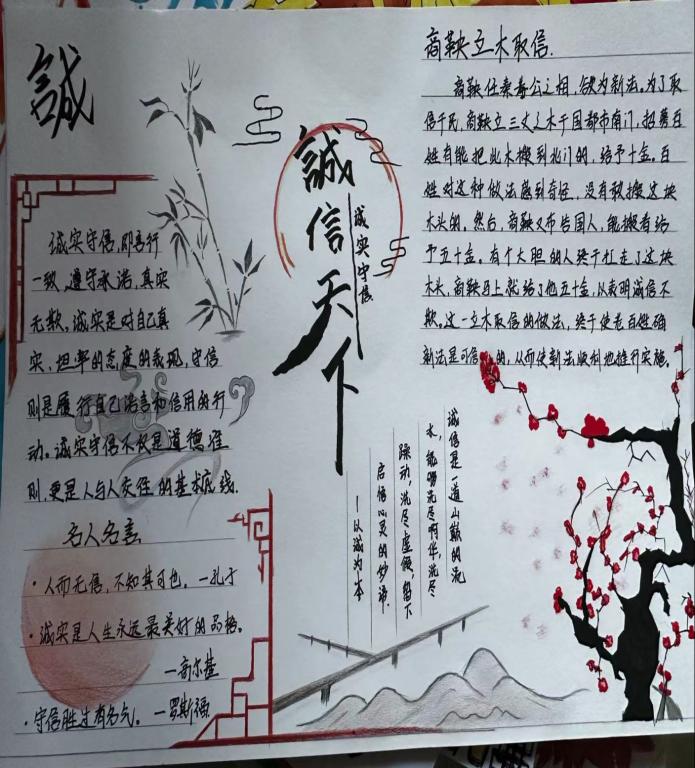 誠
诚实守信,即言行
一致、遵守承诺,真实
无欺。诚实是对自己真
实、坦率的态度的表现,守信
则是履行自己诺言和信用的行
动。诚实守信不仅是道德准
则,更是人与人交往的基本底线.
名人名言
·人而无信,不知其可也。—孔子
·诚实是人生永远最美好的品格。
—高尔基
·守信胜过有名气。—罗斯福
誠信天下
诚实守信
诚信是一道山巅的流
水,能够洗尽浮华,洗尽
躁动,洗尽虚假,留下
启悟心灵的妙谛.
—以诚为本
商鞅立木取信.
商鞅任秦孝公之相,欲为新法。为了取
信于民,商鞅立三丈之木于国都市南门,招募百
姓有能把此木搬到北门的,给予十金。百
姓对这种做法感到奇怪,没有敢搬这块
木头的。然后,商鞅又布告国人,能搬者给
予五十金。有个大胆的人终于扛走了这块
木头,商鞅马上就给了他五十金,以表明诚信不
欺。这一立木取信的做法,终于使老百姓确
新法是可信的,从而使新法顺利地推行实施。